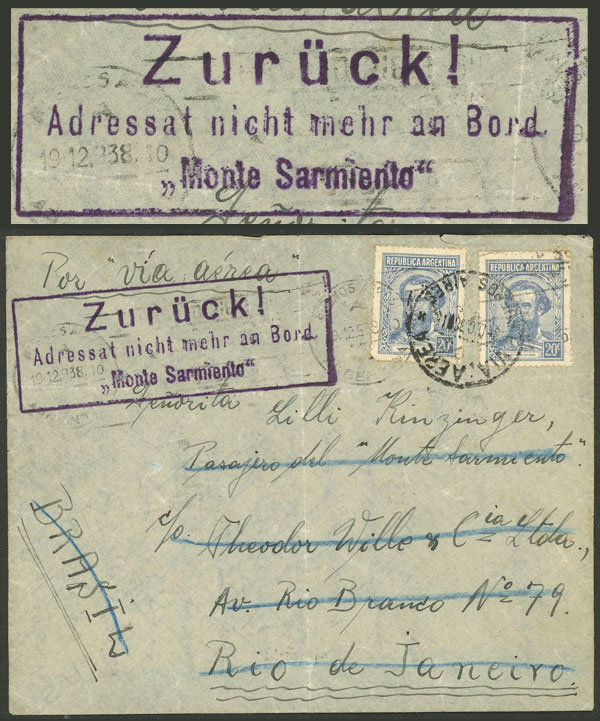 Zurück!
Adressat nicht mehr an Bord.
19.12.938.10
„Monte Sarmiento“
Por "vía aérea"
REPUBLICA ARGENTINA
20¢
REPUBLICA ARGENTINA
20¢
Zurück!
Adressat nicht mehr an Bord.
19.12.938.10
„Monte Sarmiento“
Señorita Lilli Kinzinger,
Pasajero del "Monte Sarmiento".
c/o. Theodor Wille & Cia Ltda.,
Av. Rio Branco No 79.
Rio de Janeiro.
BRASIL